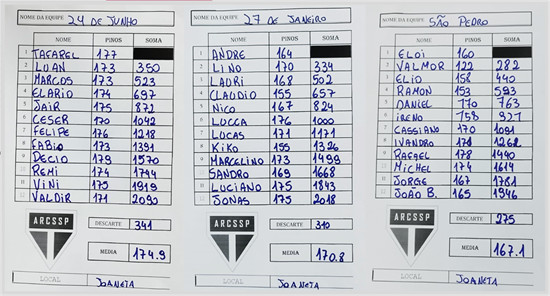 NOME DA EQUIPE 24 DE JUNHO
NOME PINOS SOMA
1 TAFAREL 177
2 LUAN 173 350
3 MARCOS 173 523
4 ELARIO 174 697
5 JAIR 175 872
6 CESER 170 1042
7 FELIPE 176 1218
8 FABIO 173 1391
9 DECIO 179 1570
10 REMI 174 1744
11 VINI 175 1919
12 VALDIR 171 2090
ARCSSP
DESCARTE 341
MEDIA 174.9
LOCAL JOANETA
NOME DA EQUIPE 27 DE JANEIRO
NOME PINOS SOMA
1 ANDRE 164
2 LINO 170 334
3 LAURI 168 502
4 CLAUDIO 155 657
5 NICO 167 824
6 LUCCA 176 1000
7 LOCAS 171 1171
8 KIKO 155 1326
9 MARCELINO 173 1499
10 SANDRO 169 1668
11 LUCIANO 175 1843
12 JONAS 175 2018
ARCSSP
DESCARTE 310
MEDIA 170.8
LOCAL JOANETA
NOME DA EQUIPE SÃO PEDRO
NOME PINOS SOMA
1 ELOI 160
2 VALMOR 122 282
3 ELIO 158 440
4 RAMON 153 593
5 DANIEL 170 763
6 IRENO 158 921
7 CASSIANO 170 1091
8 IVANDRO 171 1262
9 RAFAEL 178 1440
10 MICHEL 174 1614
11 JORGE 167 1781
12 JOÃO B. 165 1946
ARCSSP
DESCARTE 275
MEDIA 167.1
LOCAL JOANETA